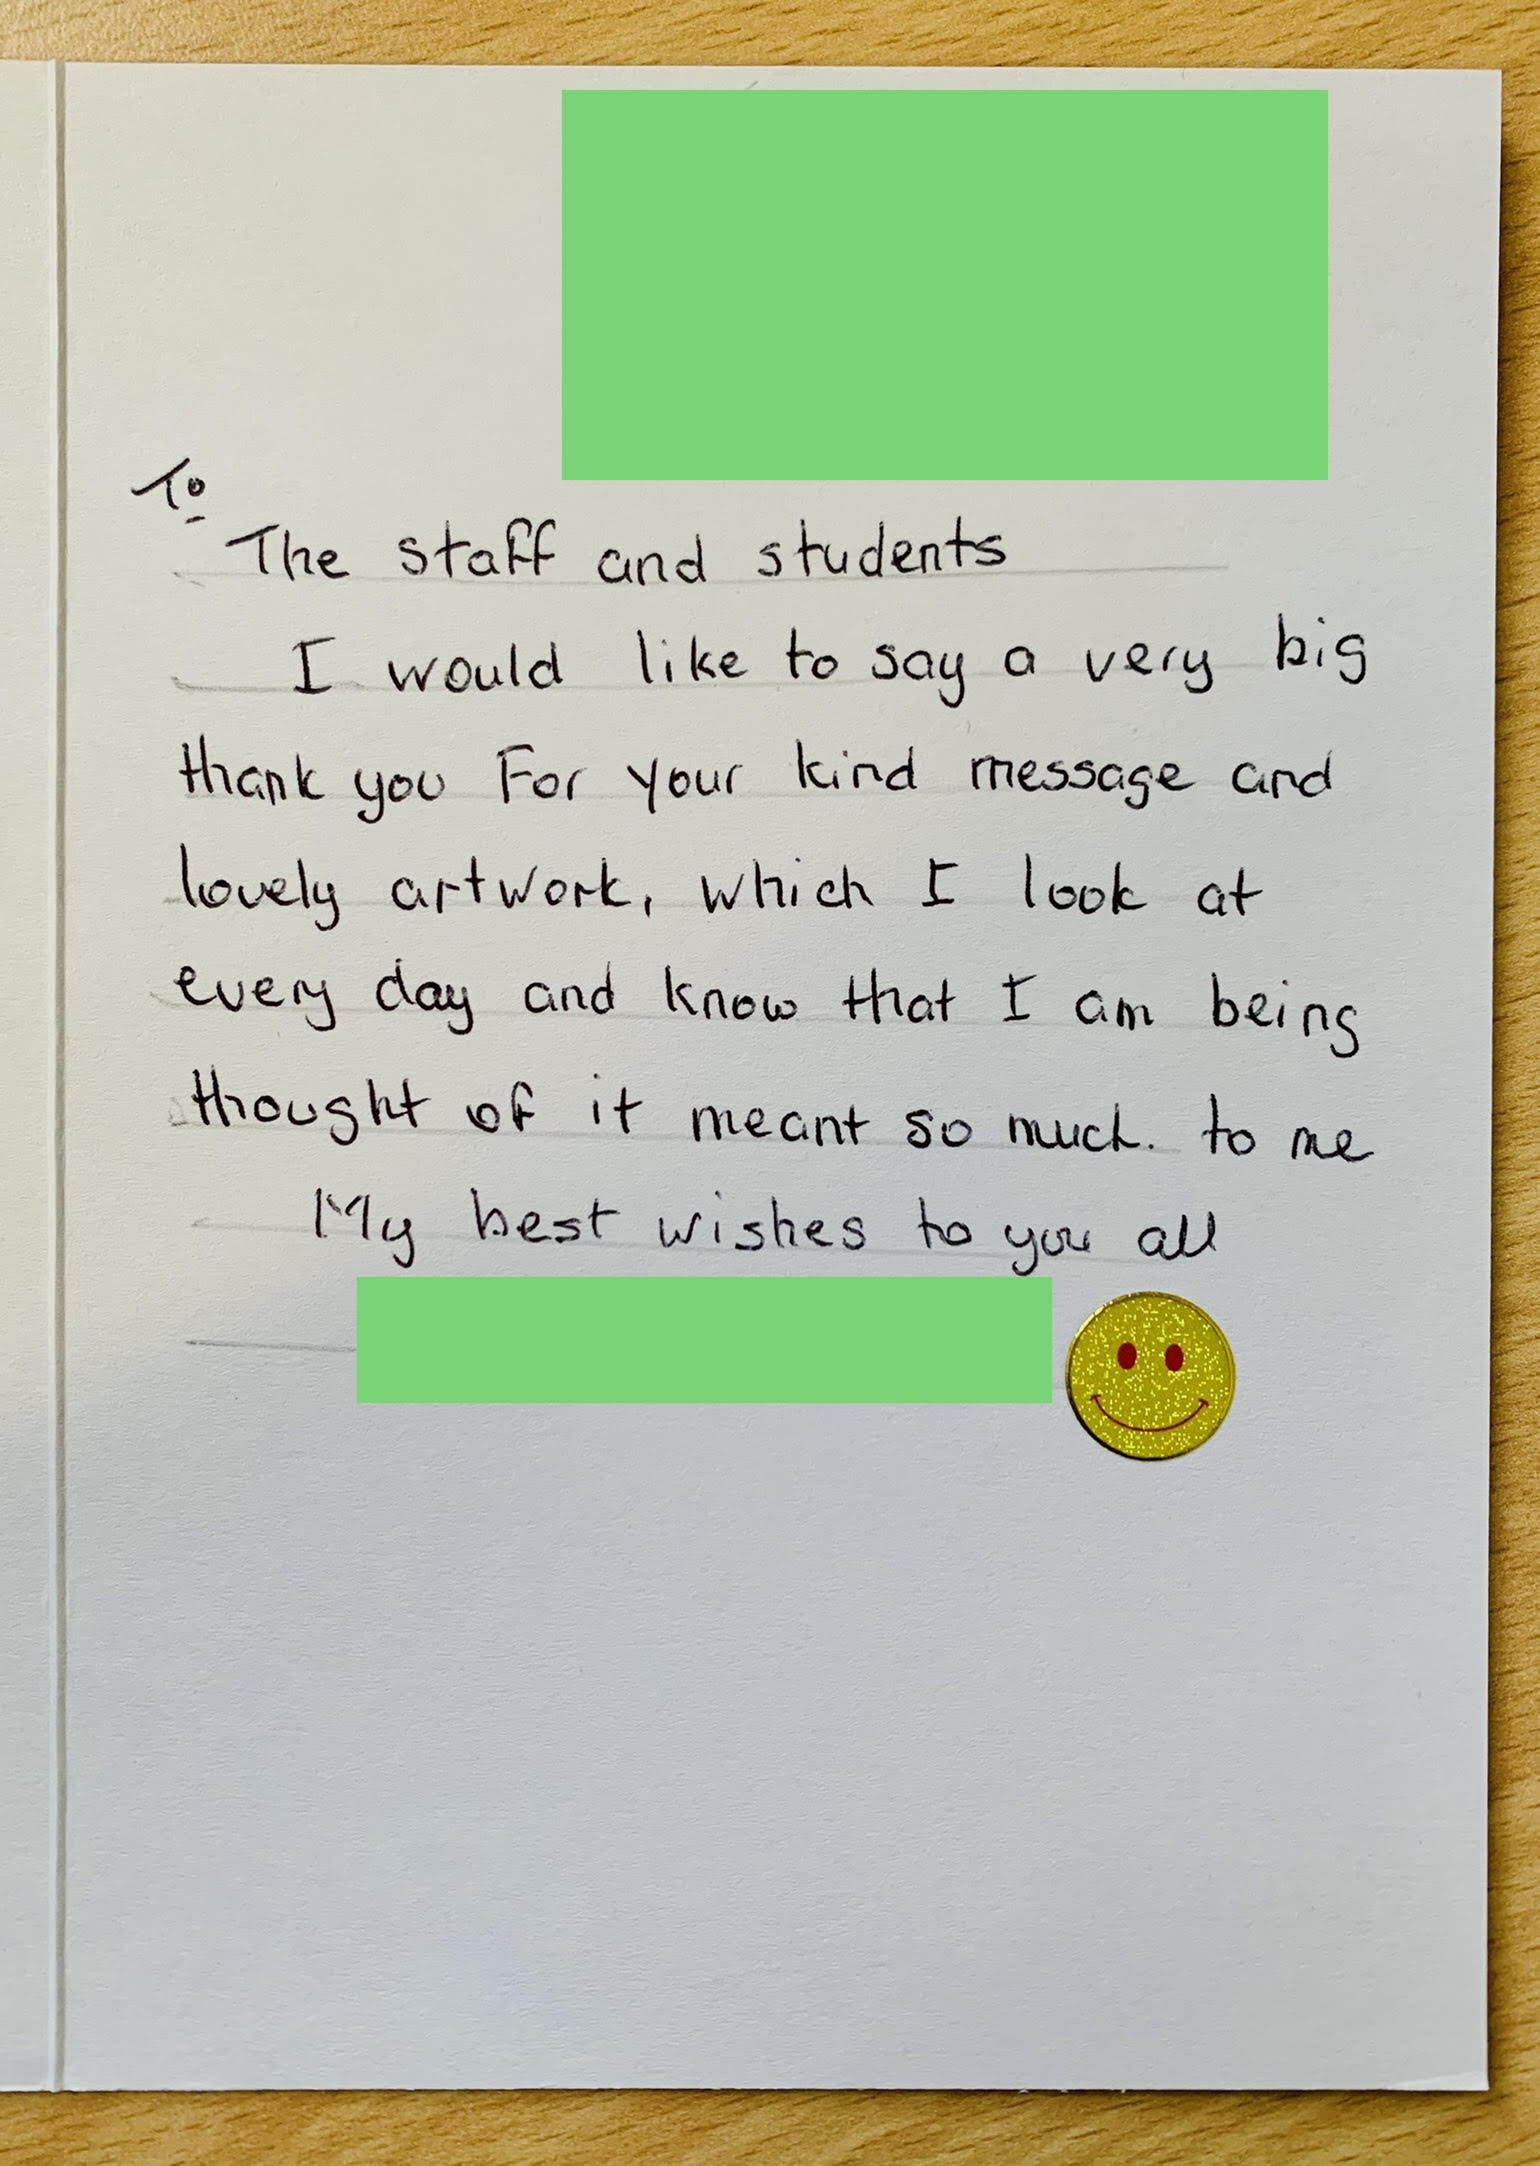 To
The staff and students
I would like to say a very big
thank you For your kind message and
lovely artwork, which I look at
every day and know that I am being
thought of it meant so much. to me
My best wishes to you all